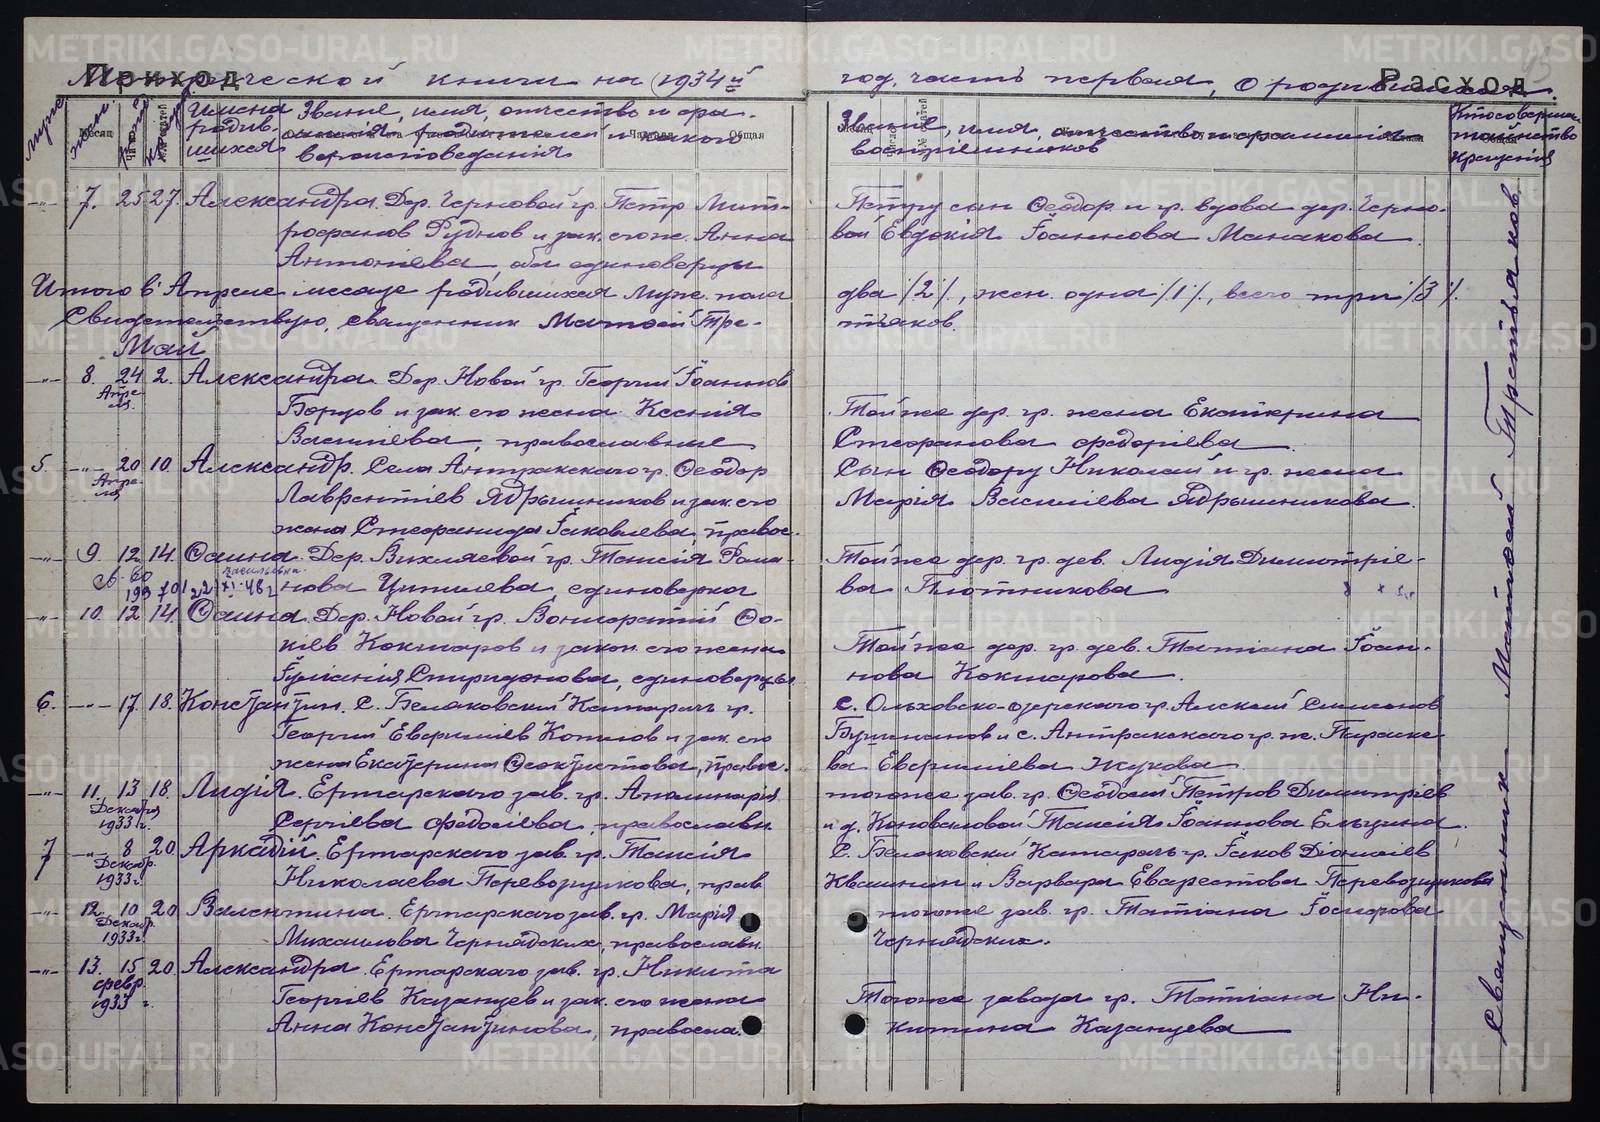 Приход
Расход
Метрической книги на 1934й год, часть первая, о родившихся.
Имена родив-
шихся
Званіе, имя, отчество и фа-
милія родителей и какого
вероисповедания
Званіе, имя, отчество и фамилія
воспріемников
Кто совершал
таинство
крещенія
-„- 7. 25 27. Александра. Дер. Черновой гр. Петр Мит-
рофанов Руднов и зак. его ж. Анна
Антониева, оба единоверцы
Петру сын Ѳеодор и гр. вдова дер. Черно-
вой Евдокія Іоаннова Манакова.
Итого в Апреле месяце родившихся муж. пола два /2/, жен. одна /1/, всего три /3/.
Свидетельствую, священник Матѳей Тре-
тьяков.
Май
-„- 8. 24 2. Александра. Дер. Новой гр. Георгий Іоаннов
Апре-
ля.
Борцов и зак. его жена Ксенія
Васильева, православные
Той же дер. гр. жена Екатерина
Стефанова Федоріева
5. -„- 20 10. Александр. Села Антракскаго гр. Ѳеодор
Апре-
ля
Лаврентіев Ядрышников и зак. его
жена Стефанида Іаковлева, правос.
Сын Ѳеодору Николай и гр. жена
Марія Васильева Ядрышникова
-„- 9. 12 14. Ѳаина. Дер. Вихляевой гр. Таисія Рома-
Васильевна
нова Цитлева, единоверка
Той же дер. гр. дев. Лидія Димитріе-
ва Плотникова
-„- 10. 12 14. Ѳаина. Дер. Новой гр. Вонифатий Ѳо-
киев Кокшаров и закон. его жена
Іуліанія Спиридонова, единоверцы
Той же дер. гр. дев. Татіана Іоан-
нова Кокшарова.
6. -„- 17 18. Константин. С. Беляковский Катарачъ гр.
Георгий Евфимиев Копылов и зак. его
жена Екатерина Ѳеоктистова, правос.
С. Ольховско-озерскаго гр. Алексий Симеонов
и с. Антракскаго гр. ж. Параске-
ва Евфимиева Жукова
-„- 11. 13 18. Лидія. Ертарскаго зав. гр. Аполинарія
Декабря
1933 г.
Сергіева Федосіева, православн.
тогоже зав. гр. Ѳеодосий Петров Димитріев
и д. Коноваловой Таисія Іоаннова Ельцина.
7 -„- 8 20 Аркадій. Ертарскаго зав. гр. Таисія
Декабр.
1933 г.
Николаева Перевозщикова, прав
С. Беляковский Катарачъ гр. Іаков Діонисіев
Квашнин и Варвара Еварестова Перевозщикова
-„- 12. 10 20 Валентина. Ертарскаго зав. гр. Марія
Декабр.
1933 г.
Михаилова Чернядских, православн.
тогоже зав. гр. Татіана
Чернядских.
-„- 13. 15 20. Александра. Ертарскаго зав. гр. Никита
февр.
1933 г.
Георгіев Казанцев и зак. его жена
Анна Константинова, правосла.
Тогоже завода гр. Татіана Ни-
китина Казанцева
Священник Матѳей Третьяков.
METRIKI.GASO-URAL.RU